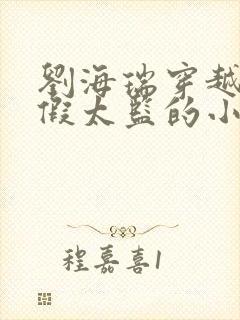 劉海瑞穿越
假太監的小
程嘉喜1